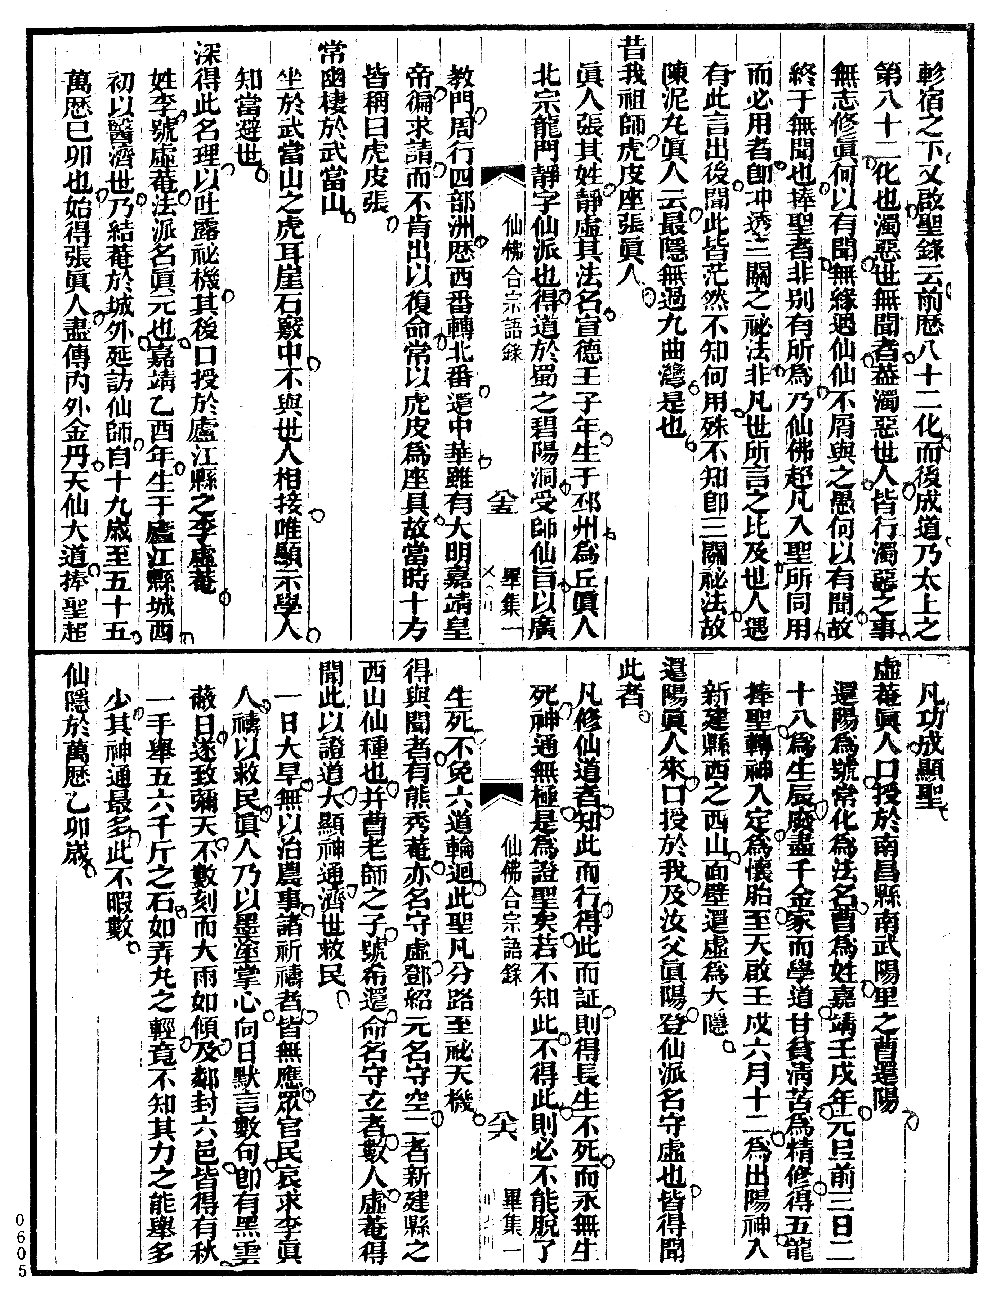 軫宿之下又啟聖錄云前歷八十二化而後成道乃太上之
第八十二化也濁惡世無聞者葢濁惡世人皆行濁惡之事
無志修眞何以有聞無緣遇仙仙不屑與之愚何以有聞故
終于無聞也捧聖者非別有所爲乃仙佛超凡入聖所同用
而必用者卽冲透三關之祕法非凡世所言之比及世人遇
有此言出後聞此皆茫然不知何用殊不知卽三關祕法故
陳泥丸眞人云最隱無過九曲灣是也
昔我祖師虎皮座張眞人
眞人張其姓靜虛其法名宣德壬子年生于邳州爲丘眞人
北宗龍門靜字仙派也得道於蜀之碧陽洞受師仙旨以廣
仙佛合宗語錄
八五
畢集一
教門周行四部洲歷西番轉北番還中華雖有大明嘉靖皇
帝徧求請而不肯出以復命常以虎皮爲座具故當時十方
皆稱曰虎皮張
常幽棲於武當山
坐於武當山之虎耳崖石竅中不與世人相接唯顯示學人
知當避世
深得此名理以吐露祕機其後口授於廬江縣之李虛菴
姓李號虛菴法派名眞元也嘉靖乙酉年生于廬江縣城西
初以醫濟世乃結菴於城外延訪仙師自十九歲至五十五
萬歷巳卯也始得張眞人盡傳內外金丹天仙大道捧聖超
凡功成顯聖
虛菴眞人口授於南昌縣南武陽里之曹還陽
還陽爲號常化爲法名曹爲姓嘉靖壬戌年元旦前三日二
十八爲生辰廢盡千金家而學道甘貧淸苦爲精修得五龍
捧聖轉神入定爲懷胎至天啟壬戌六月十二爲出陽神入
新建縣西之西山面壁還虛爲大隱
還陽眞人來口授於我及汝父眞陽登仙派名守虛也皆得聞
此者
凡修仙道者知此而行得此而証則得長生不死而永無生
死神通無極是爲證聖矣若不知此不得此則必不能脫了
仙佛合宗語錄
八六
畢集一
生死不免六道輪迴此聖凡分路至祕天機
得與聞者有熊秀菴亦名守虛鄧紹元名守空二者新建縣之
西山仙種也并曹老師之子號希還命名守立者數人虛菴得
聞此以證道大顯神通濟世救民
一日大旱無以治農事諸祈禱者皆無應眾官民哀求李眞
人禱以救民眞人乃以墨塗掌心向日默言數句卽有黑雲
蔽日遂致彌天不數刻而大雨如傾及鄰封六邑皆得有秋
一手舉五六千斤之石如弄丸之輕竟不知其力之能舉多
少其神通最多此不暇數
仙隱於萬歷乙卯歲
0605